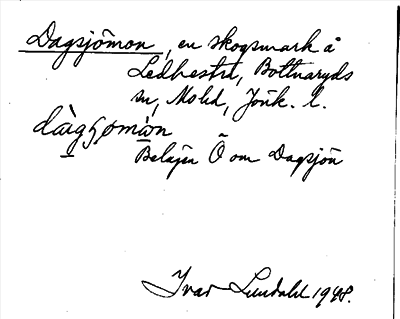 Dagsjömon, en skogsmark å
Ledhestra, Bottnaryds
sn, Mo hd, Jönk. l.
dàgʂomȯn
Belägen Ö om Dagsjön
Ivar Lundahl 1948.